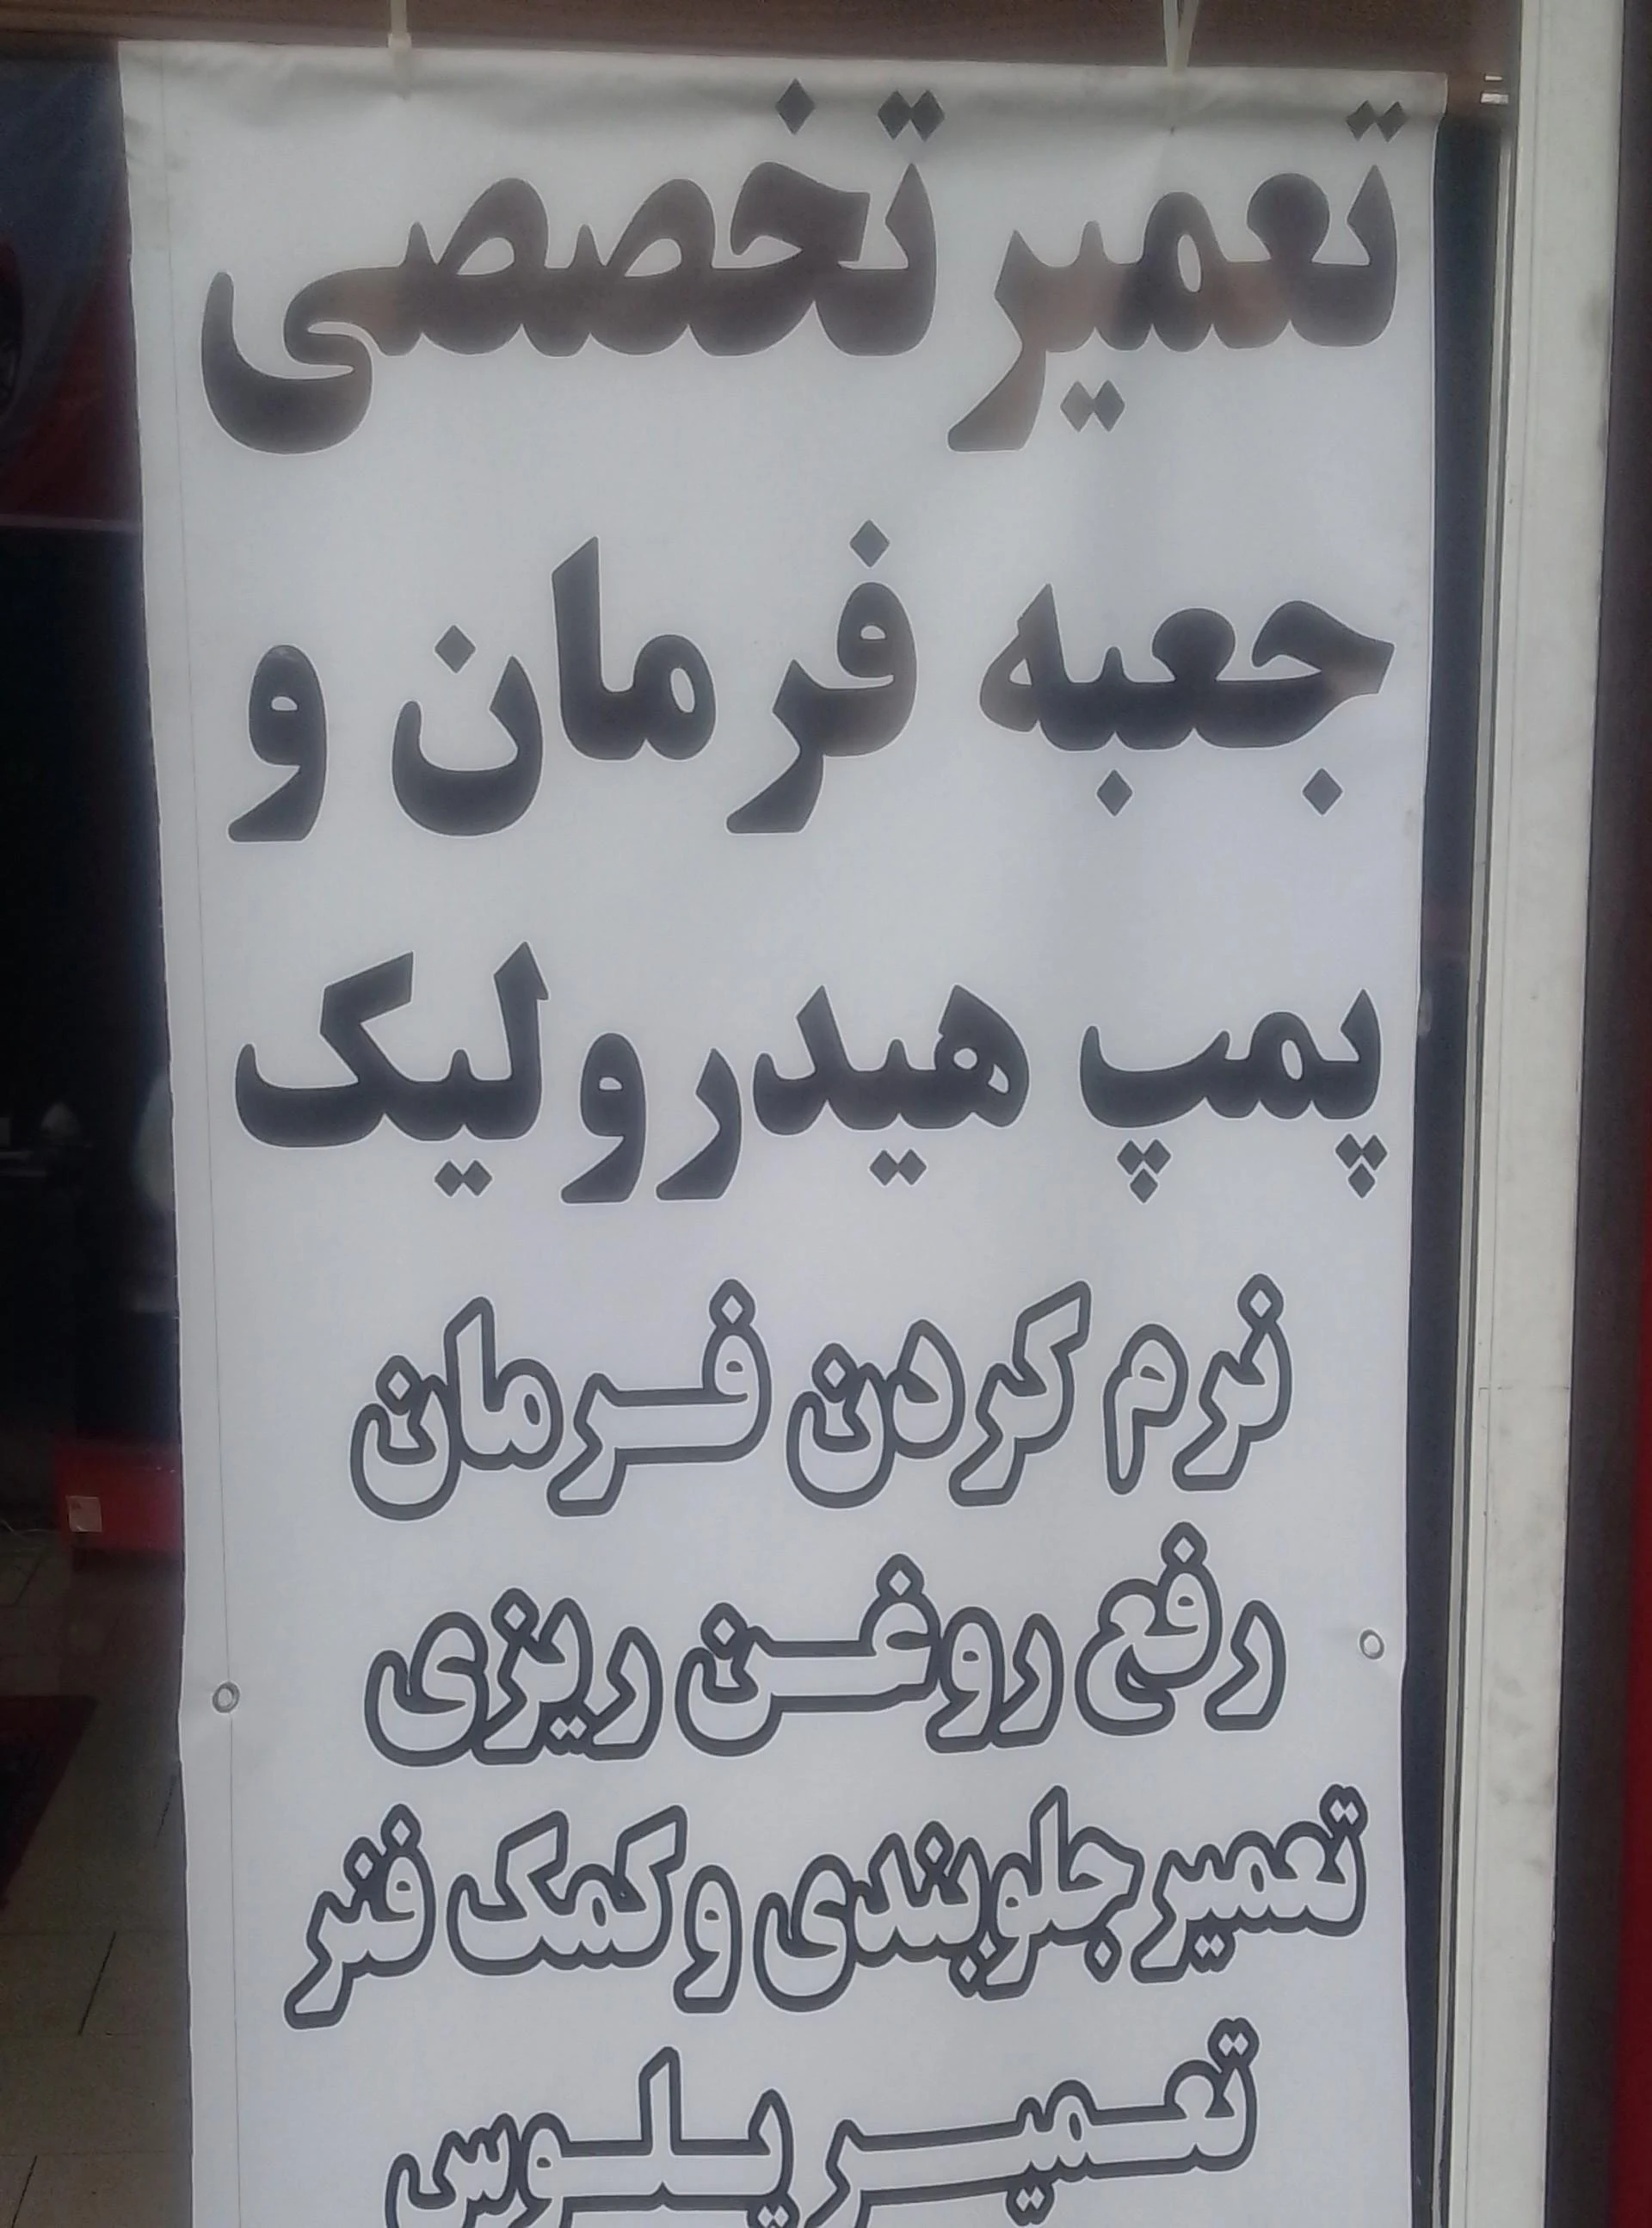 تعمیر تخصصی
جعبه فرمان و
پمپ هیدرولیک
نرم کردن فرمان
رفع روغن ریزی
تعمیر جلوبندی و کمک فنر
تعمیر پلوس